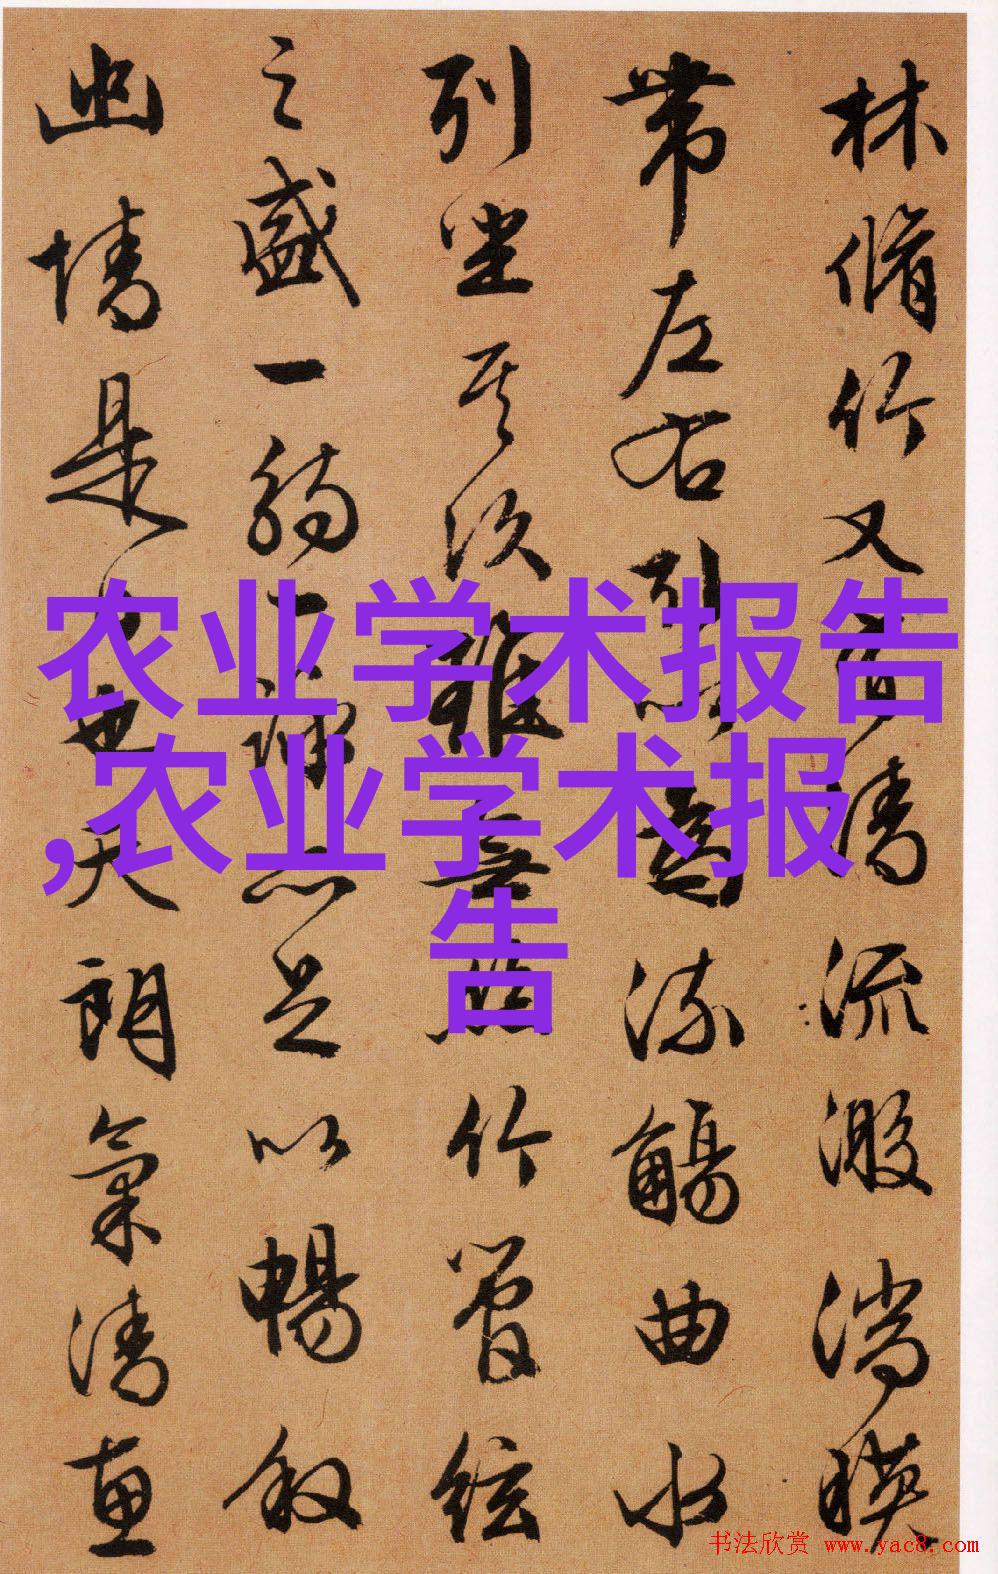 林脩竹又有清流激湍暎
帶左右引以為流觴曲水
列坐其次雖無絲竹管絃
之盛一觴一詠亦足以暢叙
幽情是日也天朗氣清惠
农业学术报告
,农业学术报
告
书法欣赏 www.yac8.com